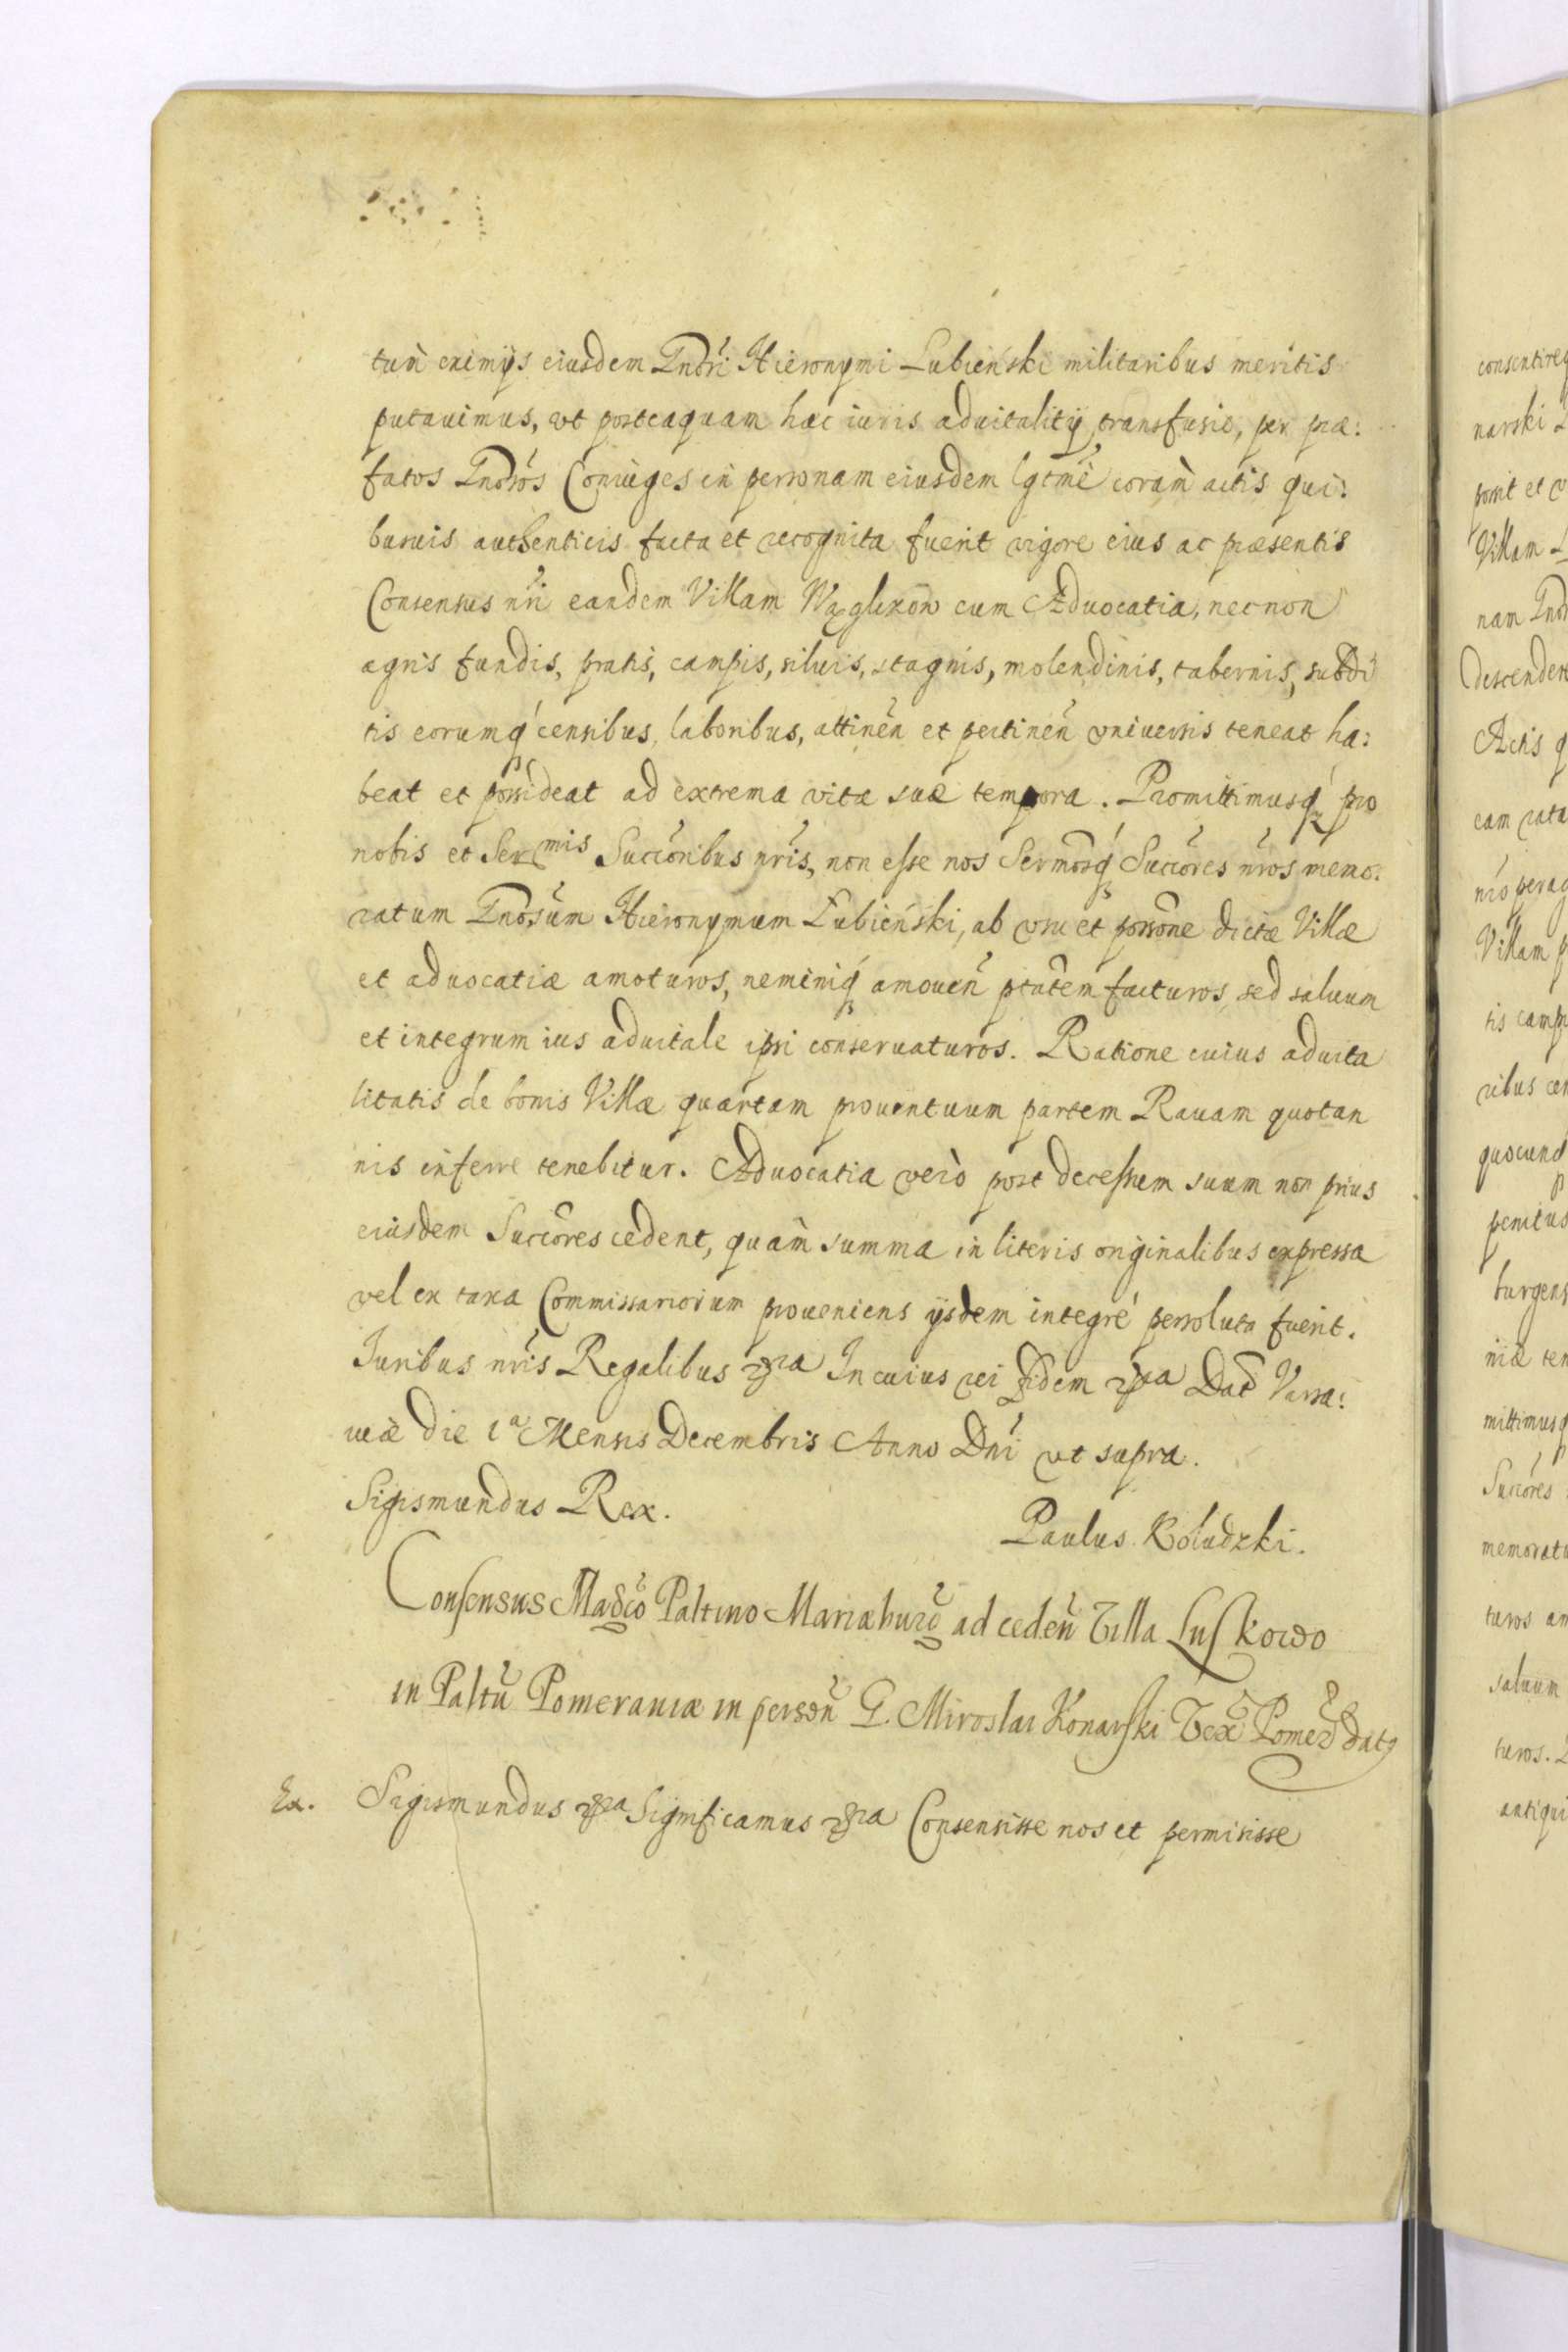 tum eximijs eiusdem Gnōsi Hieronymi Łubieński militaribus meritis
putauimus, vt posteaquam hæc iuris aduitalitij transfusio, per præ:
fatos Gnōsos Coniuges in personam eiusdem lgtmè coram actis qui:
busuis authenticis facta et recognita fuerit vigore eius ac præsentis
Consensus nrī eandem Villam Węglikow cum Aduocatia, necnon
agris fundis, pratis, campis, siluis, stagnis, molendinis, tabernis, subdi
tis eorumq́ censibus, laboribus, attineñ et pertineñ vniuersis teneat ha:
beat et possideat ad extrema vitæ suæ tempora. Promittimusq́ pro
nobis et Sermis Succōribus nrīs, non esse nos Sermosq́ Succōres nrōs memo:
ratum Gnōsum Hieronymum Łubieński, ab vsu et possōne dictæ Villæ
et aduocatiæ amoturos, neminiq́ amoueñ ptātem facturos, sed saluum
et integrum ius aduitale ipsi conseruaturos. Ratione cuius aduita
litatis de bonis Villæ quartam prouentuum partem Rauam quotan
nis inferre tenebitur. Aduocatia verò post decessum suum non prius
eiusdem Succōres cedent, quàm summa in literis originalibus expressa
vel ex taxa Commissariorum proueniens ijsdem integrè persoluta fuerit.
Iuribus nrīs Regalibus &ra In cuius rei fidem &ra Dat̄ Varsa:
uiæ die 1a Mensis Decembris Anno Dnī vt supra.
Sigismundus Rex.
Paulus Kołudzki.
Consensus Magco Paltino Mariæburg̃ ad cedeñ Villa Luſkowo
in Paltū Pomeraniæ in persoñ G. Miroslai Konarſki Vex̃ Pomer̃ dat9
Ex. Sigismundus &ra Significamus &ra Consensisse nos et permisisse
consentireq
narski
possit et v
Villam
nam Gnos
descenden
Actis q
eam rata
nio perag
Villam p
tis camp
ribus cen
quocunq
penitus
burgens
niæ ten
mittimusq
Succōres
memoratu
turos am
saluum
turos.
antiqui